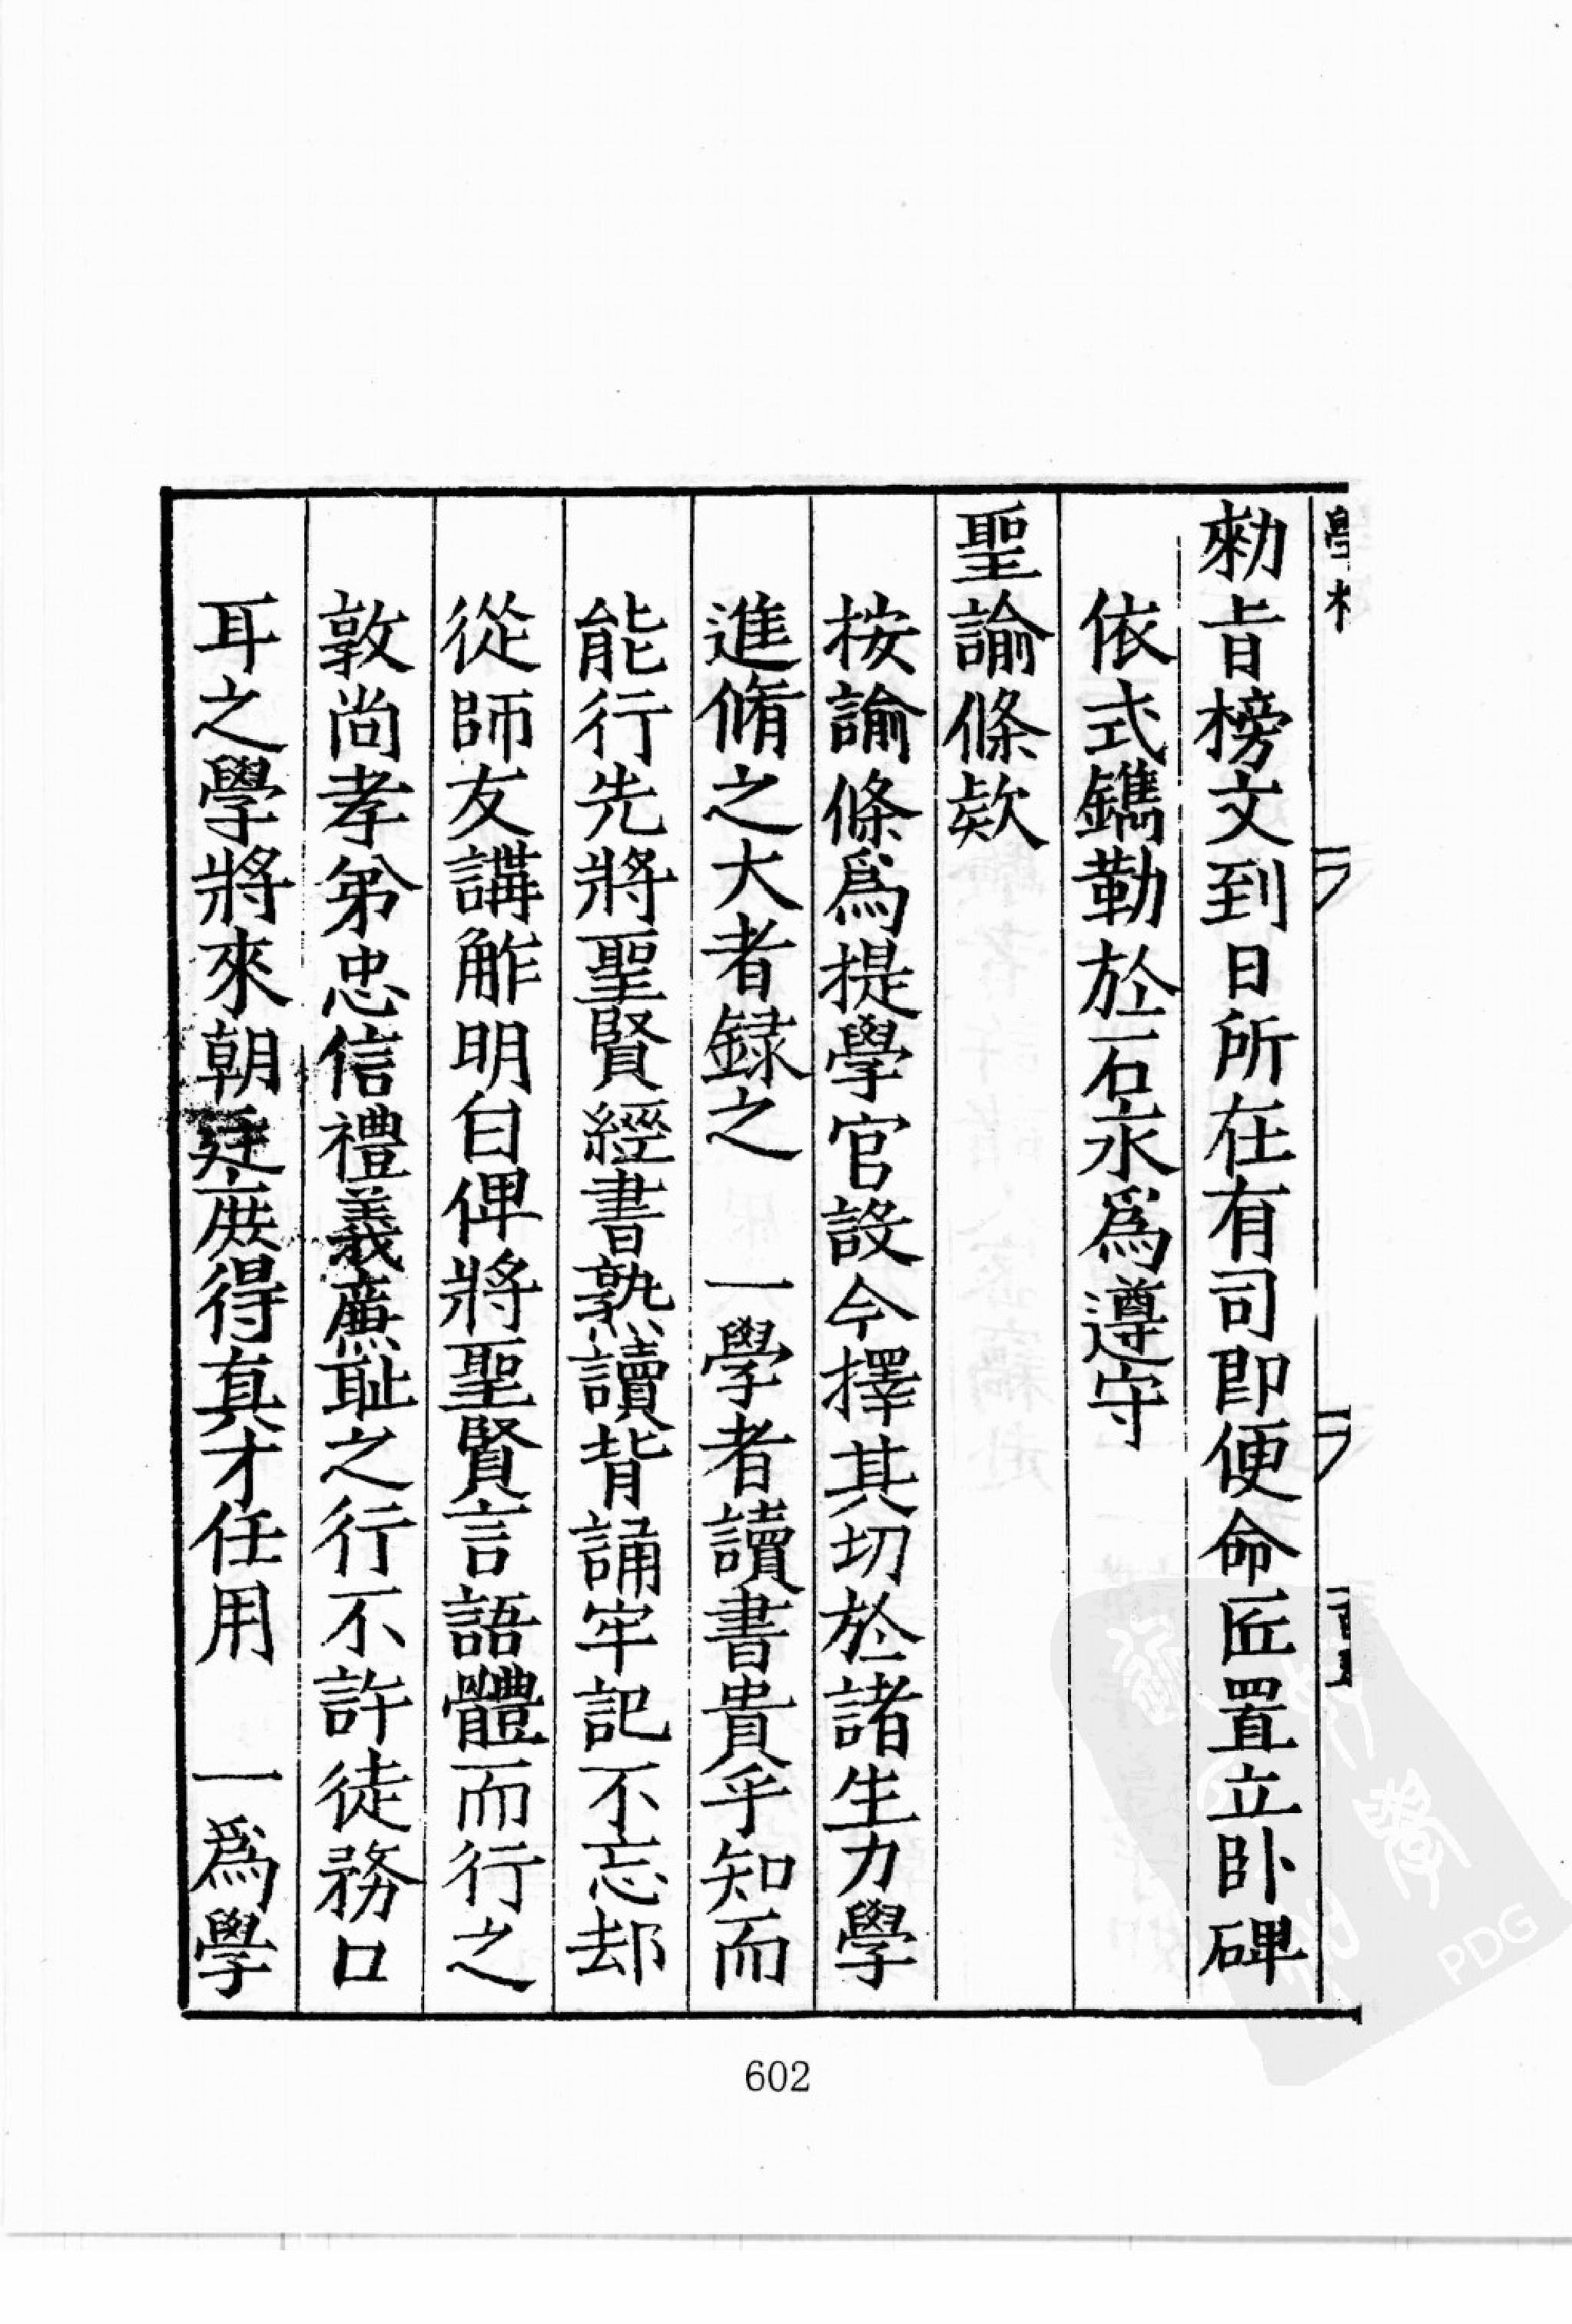 勑旨榜文到日所在有司即便命匠置立卧碑
依式鐫勒於石永爲遵守
聖諭條欵
按諭條爲提學官設今擇其切於諸生力學
進脩之大者録之　一學者讀書貴乎知而
能行先將聖賢經書熟讀背誦牢記不忘却
從師友講觧明白俾將聖賢言語體而行之
敦尚孝弟忠信禮義亷耻之行不許徒務口
耳之學將來朝廷庻得真才任用　一爲學
602
PDG